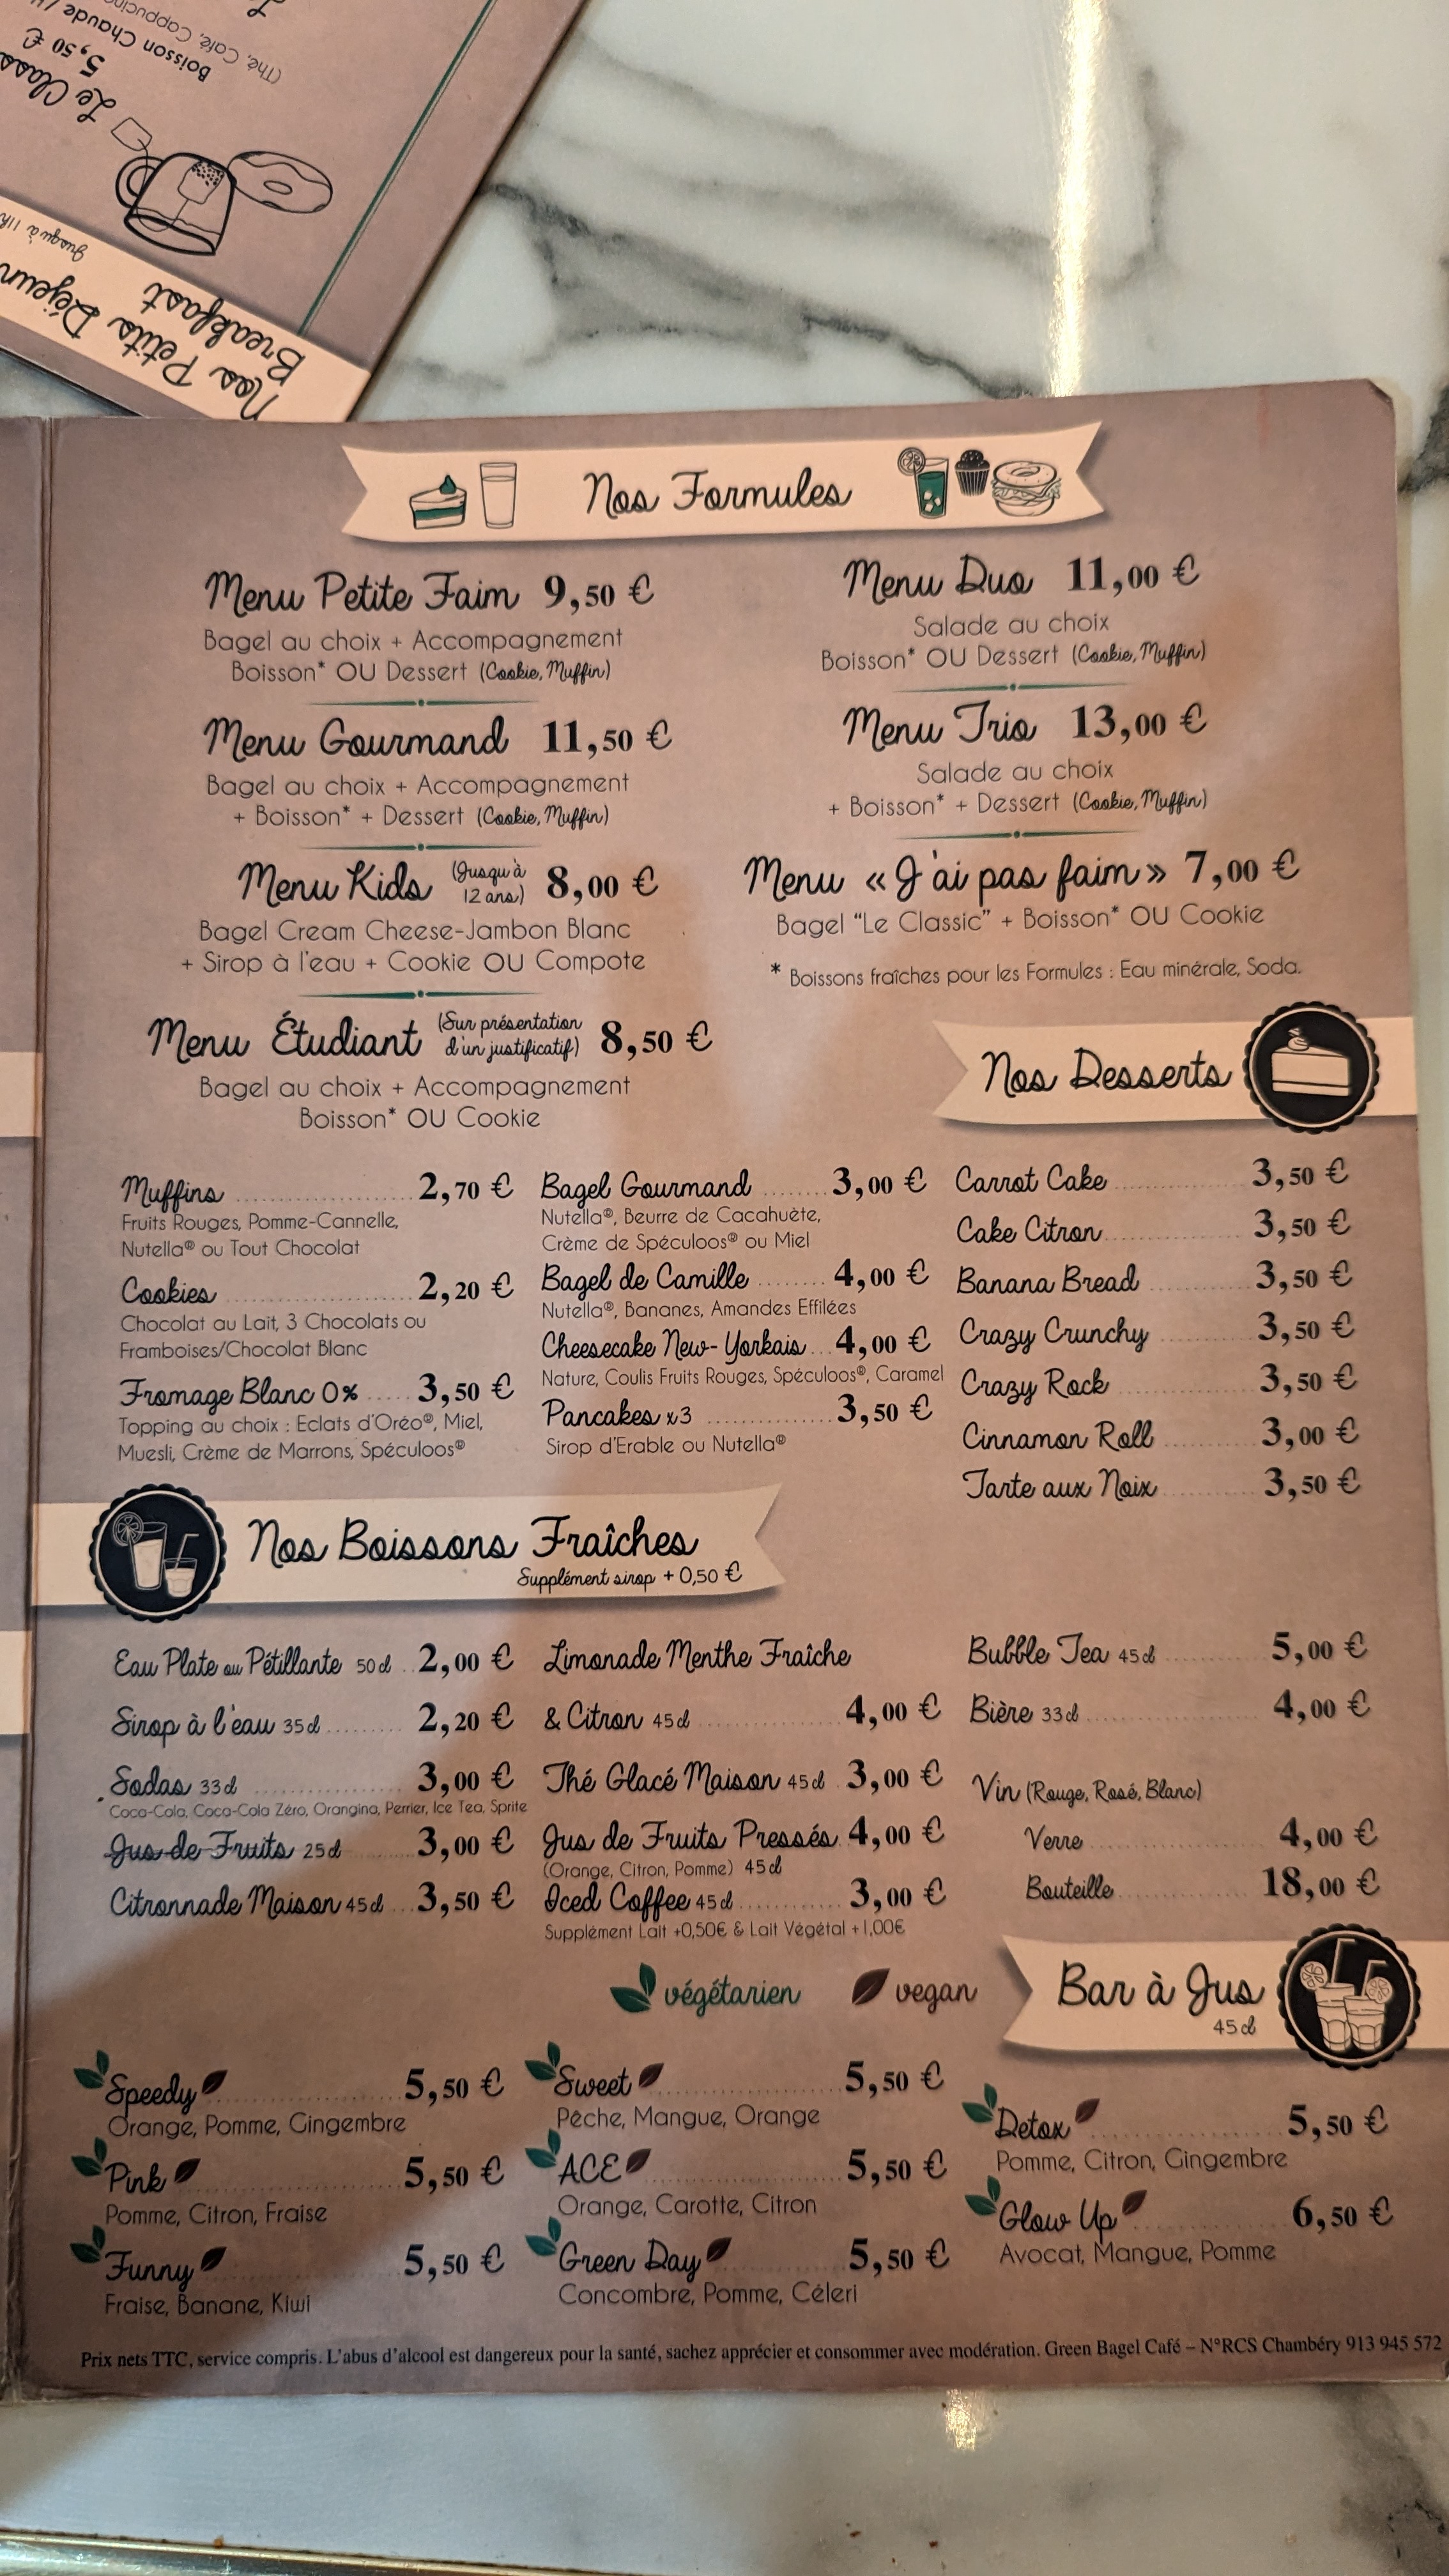 Nos Petits Déjeun
Breakfast
Jusqu'à 11h
Le Class
5,50 €
Boisson Chaude /
(Thé, Café, Cappuccin
Nos Formules
Menu Petite Faim 9,50 €
Bagel au choix + Accompagnement
Boisson* OU Dessert (Cookie, Muffin)
Menu Gourmand 11,50 €
Bagel au choix + Accompagnement
+ Boisson* + Dessert (Cookie, Muffin)
Menu Kids (Jusqu'à 12 ans) 8,00 €
Bagel Cream Cheese-Jambon Blanc
+ Sirop à l'eau + Cookie OU Compote
Menu Étudiant (Sur présentation d'un justificatif) 8,50 €
Bagel au choix + Accompagnement
Boisson* OU Cookie
Menu Duo 11,00 €
Salade au choix
Boisson* OU Dessert (Cookie, Muffin)
Menu Trio 13,00 €
Salade au choix
+ Boisson* + Dessert (Cookie, Muffin)
Menu « J'ai pas faim » 7,00 €
Bagel “Le Classic” + Boisson* OU Cookie
* Boissons fraîches pour les Formules : Eau minérale, Soda.
Nos Desserts
Muffins 2,70 €
Fruits Rouges, Pomme-Cannelle,
Nutella® ou Tout Chocolat
Cookies 2,20 €
Chocolat au Lait, 3 Chocolats ou
Framboises/Chocolat Blanc
Fromage Blanc 0% 3,50 €
Topping au choix : Eclats d'Oréo®, Miel,
Muesli, Crème de Marrons, Spéculoos®
Bagel Gourmand 3,00 €
Nutella®, Beurre de Cacahuète,
Crème de Spéculoos® ou Miel
Bagel de Camille 4,00 €
Nutella®, Bananes, Amandes Effilées
Cheesecake New-Yorkais 4,00 €
Nature, Coulis Fruits Rouges, Spéculoos®, Caramel
Pancakes x3 3,50 €
Sirop d'Erable ou Nutella®
Carrot Cake 3,50 €
Cake Citron 3,50 €
Banana Bread 3,50 €
Crazy Crunchy 3,50 €
Crazy Rock 3,50 €
Cinnamon Roll 3,00 €
Tarte aux Noix 3,50 €
Nos Boissons Fraîches
Supplément sirop + 0,50 €
Eau Plate ou Pétillante 50cl 2,00 €
Sirop à l'eau 35cl 2,20 €
Sodas 33cl 3,00 €
Coca-Cola, Coca-Cola Zéro, Orangina, Perrier, Ice Tea, Sprite
Jus de Fruits 25cl 3,00 €
Citronnade Maison 45cl 3,50 €
Limonade Menthe Fraîche
& Citron 45cl 4,00 €
Thé Glacé Maison 45cl 3,00 €
Jus de Fruits Pressés 4,00 €
(Orange, Citron, Pomme) 45cl
Iced Coffee 45cl 3,00 €
Supplément Lait +0,50€ & Lait Végétal +1,00€
Bubble Tea 45cl 5,00 €
Bière 33cl 4,00 €
Vin (Rouge, Rosé, Blanc)
Verre 4,00 €
Bouteille 18,00 €
végétarien vegan
Bar à Jus
45cl
Speedy 5,50 €
Orange, Pomme, Gingembre
Pink 5,50 €
Pomme, Citron, Fraise
Funny 5,50 €
Fraise, Banane, Kiwi
Sweet 5,50 €
Pêche, Mangue, Orange
ACE 5,50 €
Orange, Carotte, Citron
Green Day 5,50 €
Concombre, Pomme, Céleri
Detox 5,50 €
Pomme, Citron, Gingembre
Glow Up 6,50 €
Avocat, Mangue, Pomme
Prix nets TTC, service compris. L'abus d'alcool est dangereux pour la santé, sachez apprécier et consommer avec modération. Green Bagel Café – N°RCS Chambéry 913 945 572